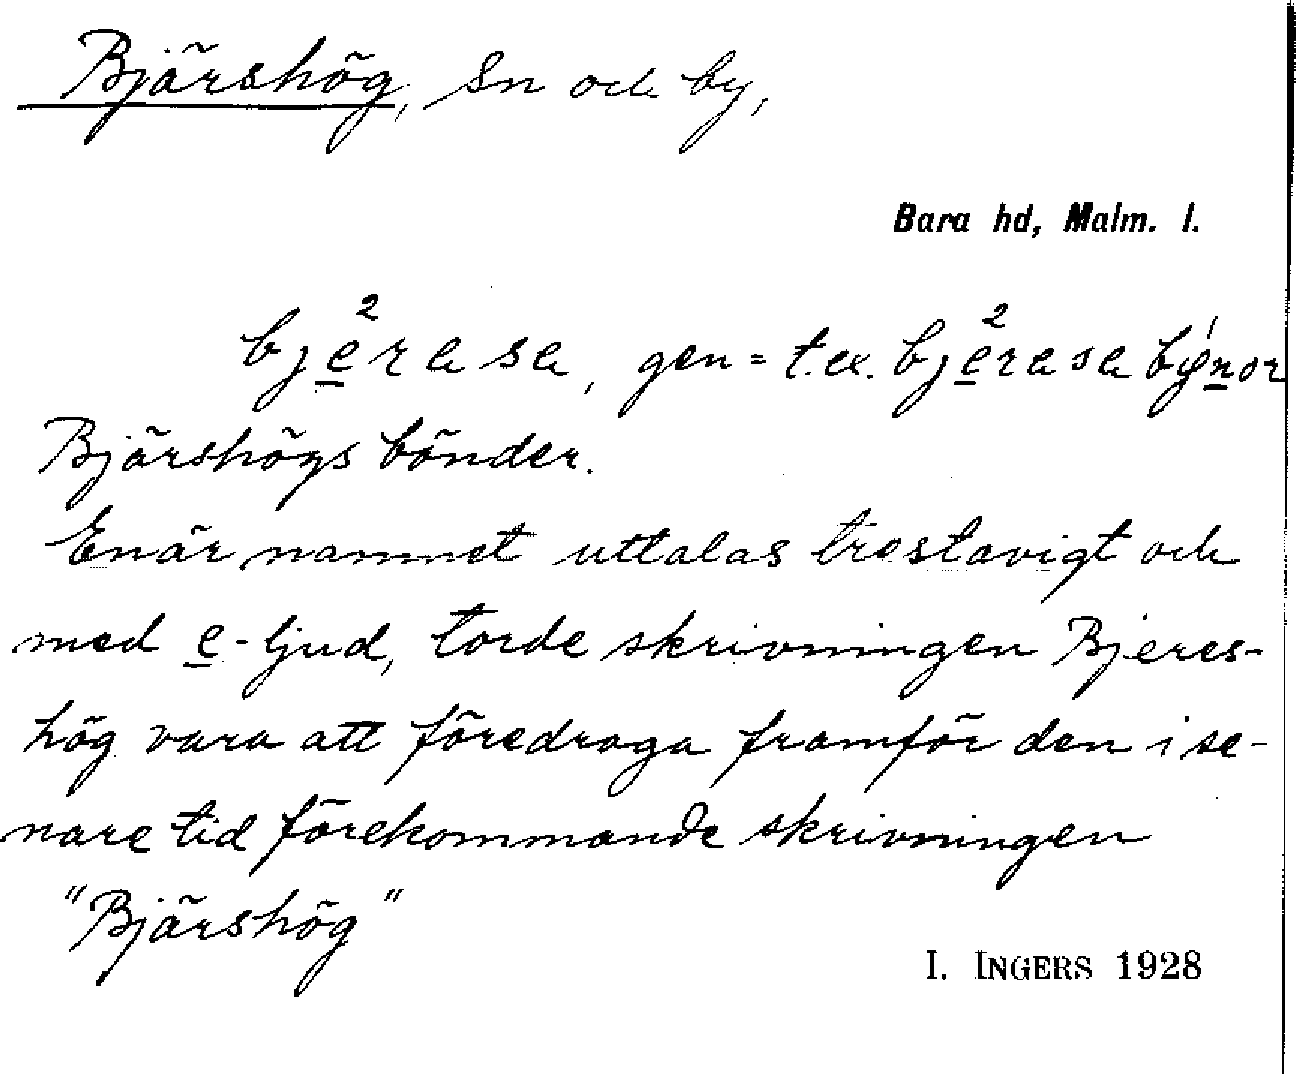 Bjärshög, Sn och by,
Bara hd, Malm. l.
bje̲²rasa, gen = t.ex. bje̲²rasa býn̲or
Bjärshögs bönder.
Enär namnet uttalas trestavigt och
med e̲-ljud, torde skrivningen Bjeres-
hög vara att föredraga framför den i se-
nare tid förekommande skrivningen
"Bjärshög"
I. INGERS 1928